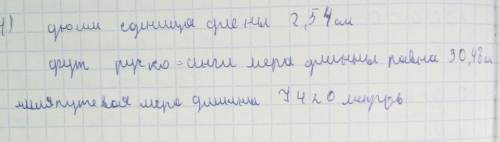 1) дюйм единица длены 2,54 см
фут руско = англ мера длинны равна 30,48 см
миляпутевая мера длинны 7420 метров